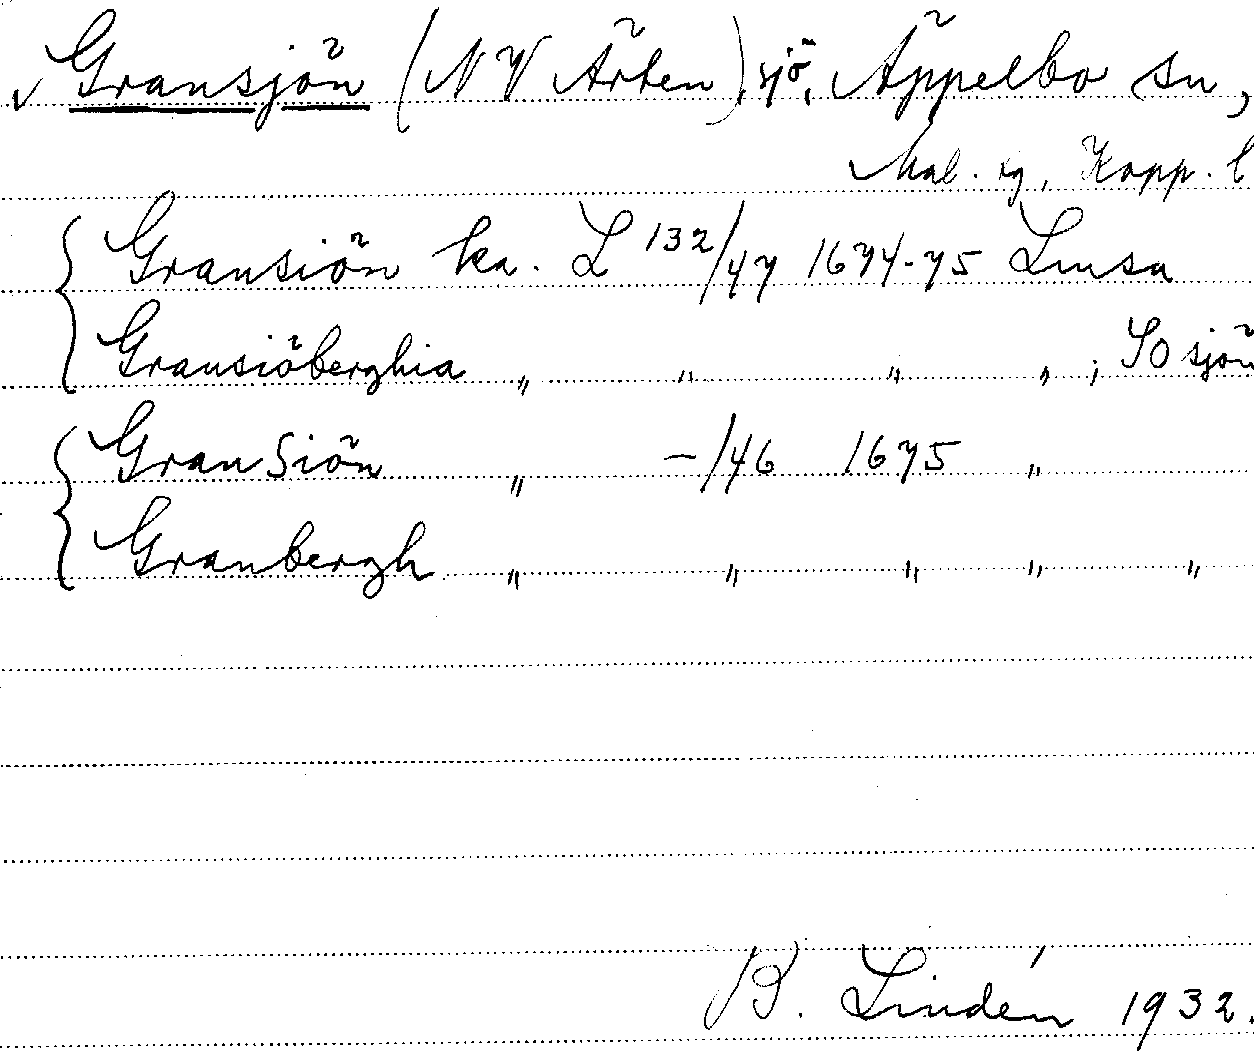 Gransjön (NV Ärten), sjö, Äppelbo sn,
Mal. tg, Kopp. l
Gransiön ka. L 132/47 1674-75 Lmsa
Gransiöberghia „ „ „ „ ; SO sjön
GranSiön „ -/46 1675 „
Granbergh „ „ „ „ „
B. Lindén 1932.